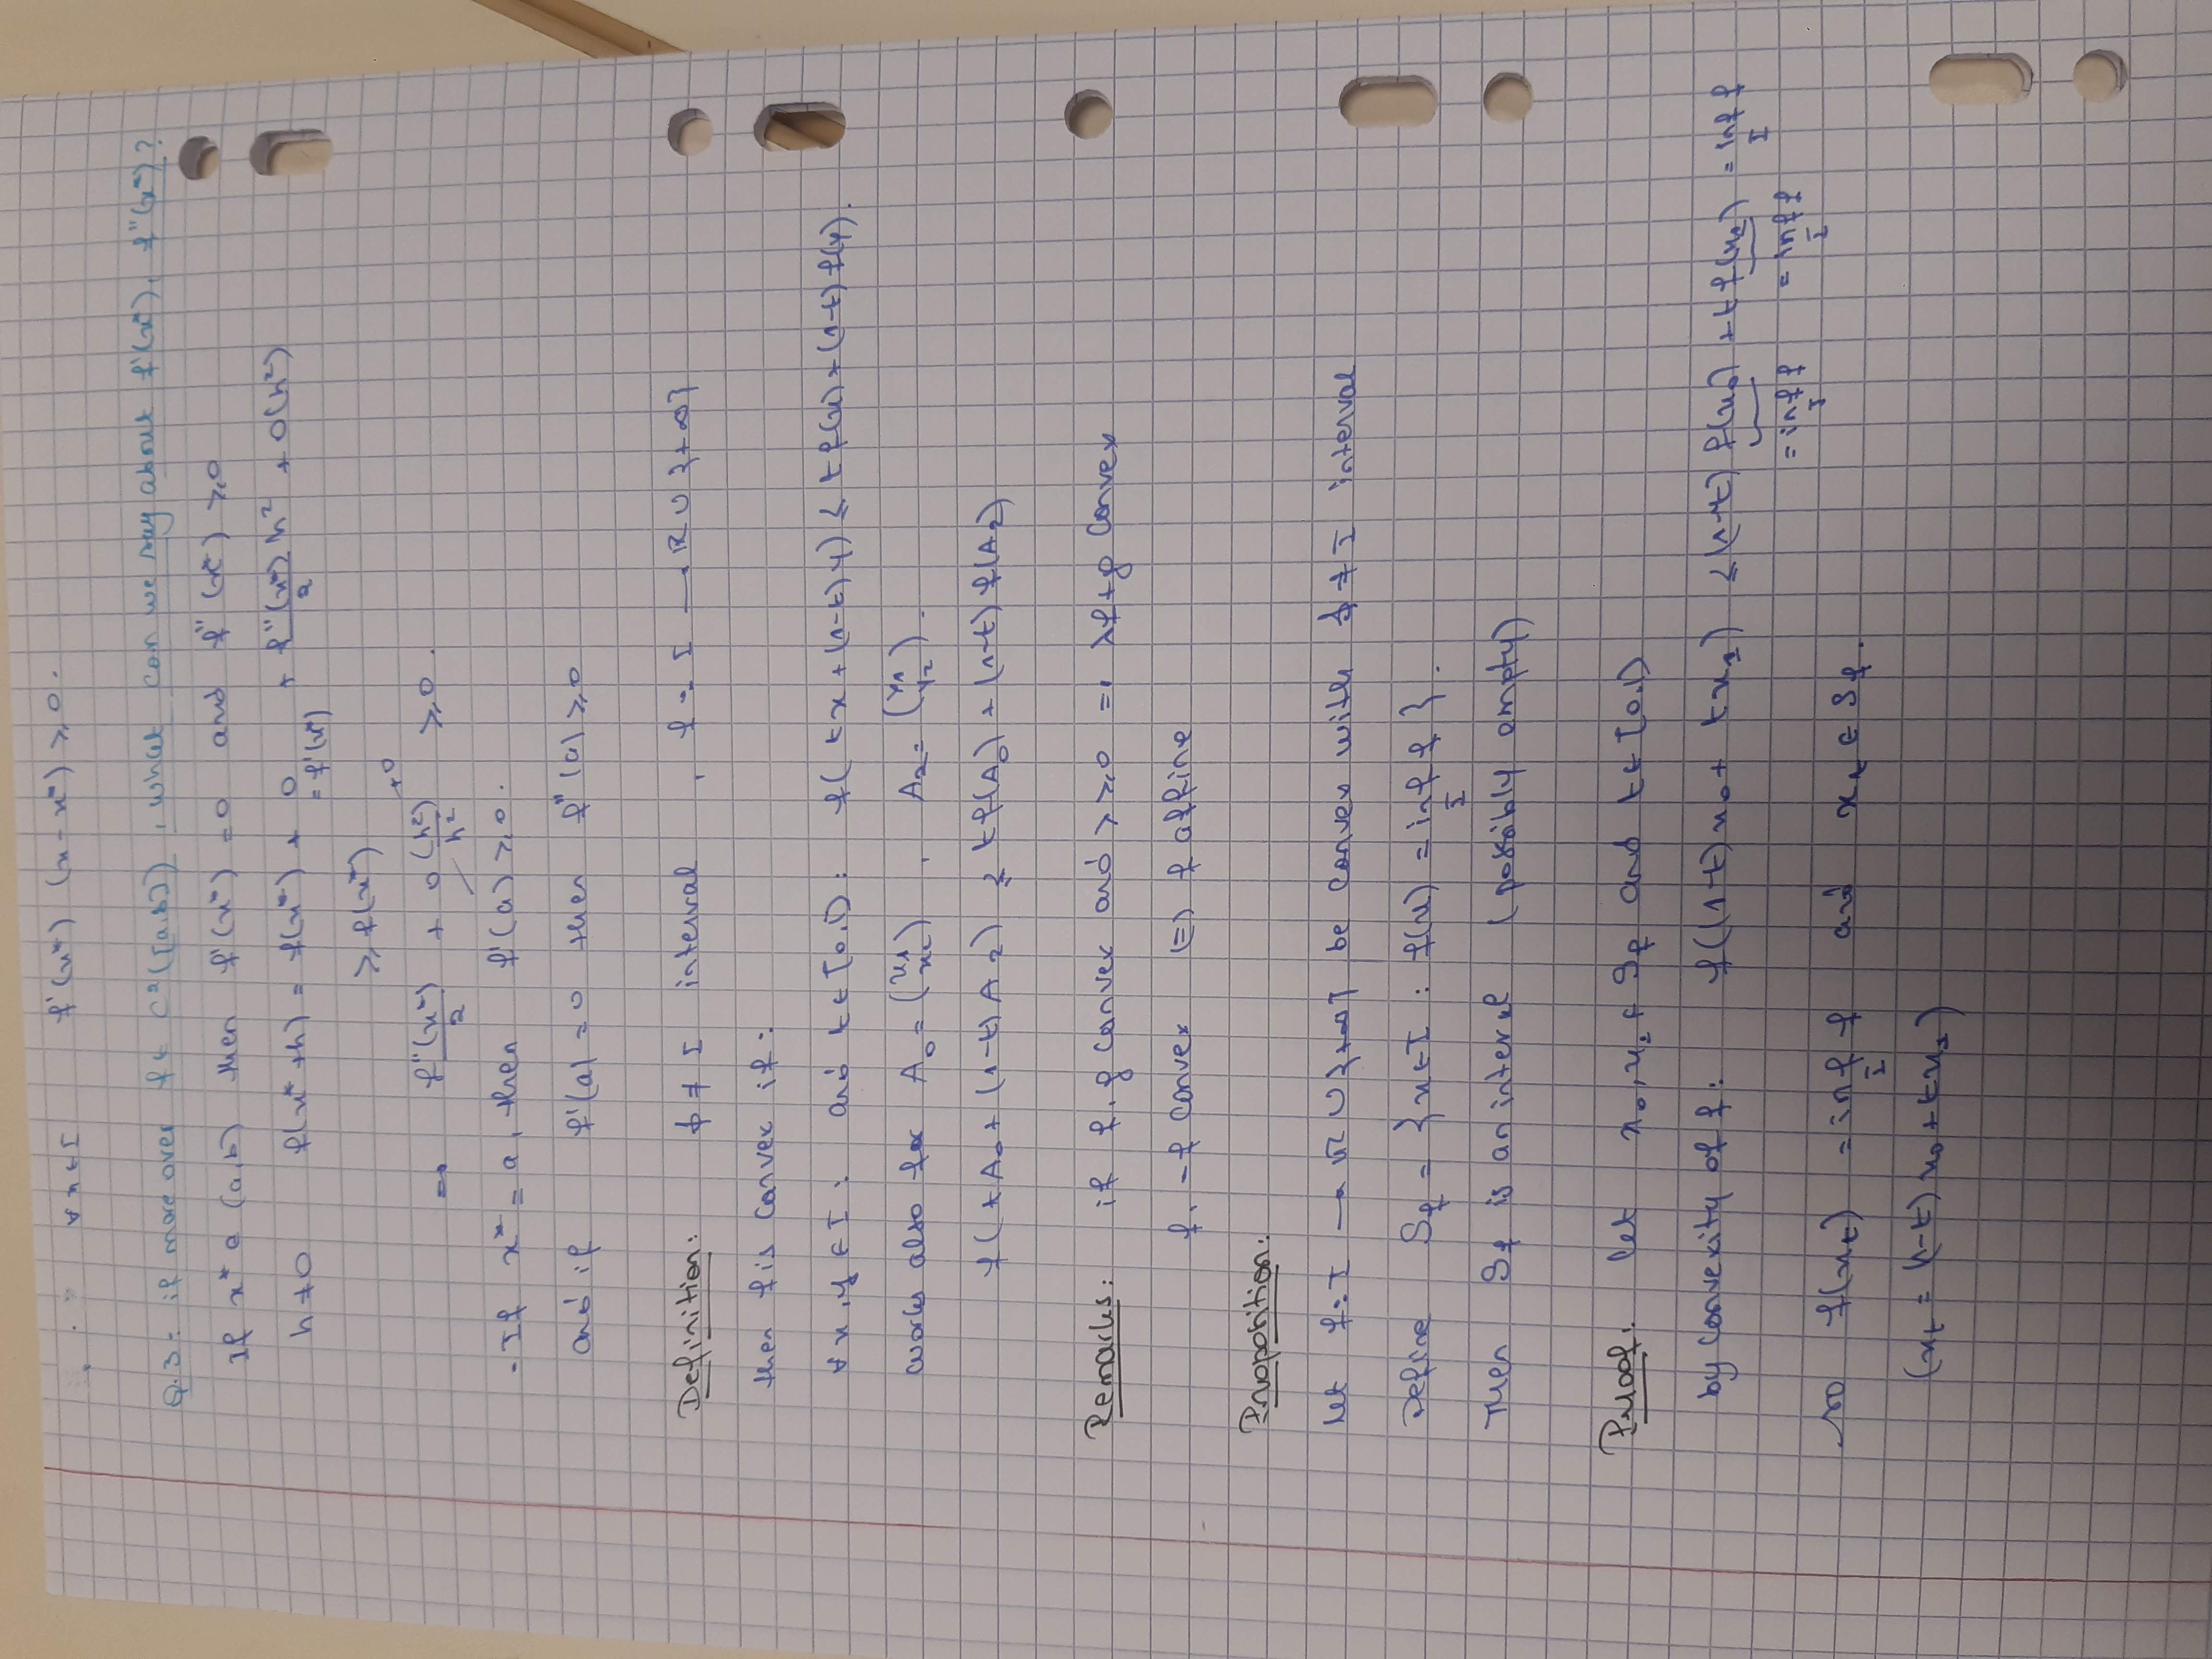 ∀ x ∈ I f'(x*) (x - x*) ⩾ 0.
Q.3: if more over f ∈ C²([a,b]), what can we say about f'(x*), f''(x*)?
If x* ∈ (a,b) then f'(x*) = 0 and f''(x*) ⩾ 0
h ≠ 0 f(x* + h) = f(x*) + 0 + f''(x*)/2 h² + O(h²)
= f'(x*)
⩾ f(x*)
⇒ f''(x*)/2 + o(h²)/h² → 0 ⩾ 0.
- If x* = a, then f'(a) ⩾ 0.
and if f'(a) = 0 then f''(a) ⩾ 0
Definition: ϕ ≠ I interval, f : I → ℝ ∪ {+∞}
then f is convex if:
∀ x, y ∈ I : and t ∈ [0,1] : f( tx + (1-t) y) ≤ t f(x) + (1-t) f(y).
works also for A₀ = (x₁ x₂), A₂ = (y₁ y₂).
f( tA₀ + (1-t) A₂) ≤ t f(A₀) + (1-t) f(A₂)
Remarks: if f, g convex and λ ⩾ 0 ⇒ λf+g convex
f, -f convex (=) f affine
Proposition:
Let f: I → ℝ ∪ {+∞} be convex with ϕ ≠ I interval
Define S_f = {x ∈ I : f(x) = inf_I f}.
Then S_f is an interval (possibly empty)
Proof: let x₀, x₁ ∈ S_f and t ∈ [0,1]
by convexity of f: f((1-t) x₀ + t x₁) ≤ (1-t) f(x₀) + t f(x₁) = inf_I f
= inf_I f = inf_I f
so f(x_t) = inf_I f and x_t ∈ S_f.
(x_t = (1-t) x₀ + t x₁)